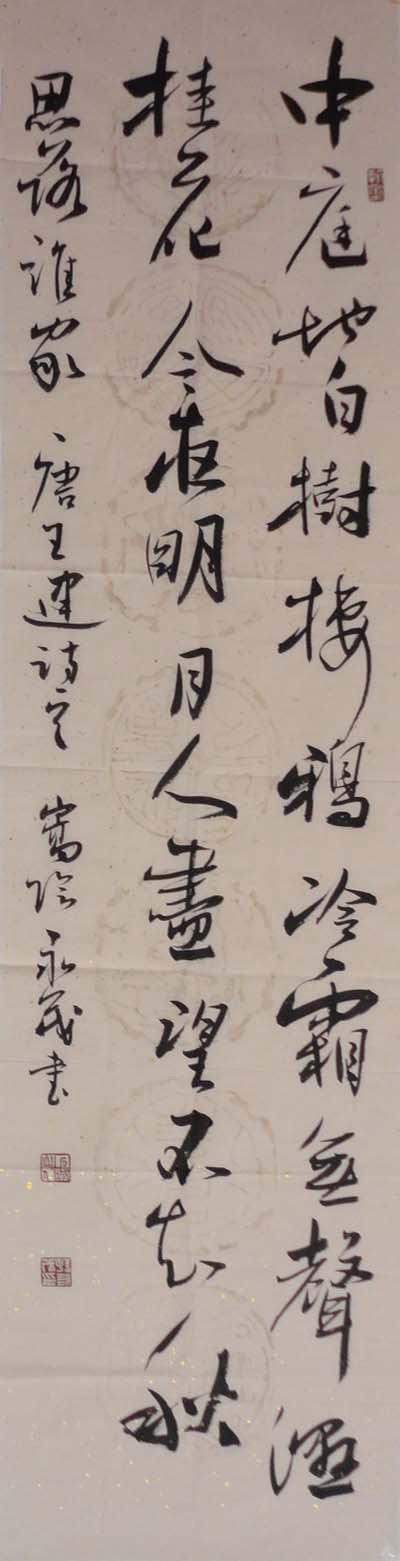 中庭地白樹棲鴉冷霜無聲濕
桂花今夜明月人盡望不知秋
思落誰家 唐王建詩 嵩陰永茂书